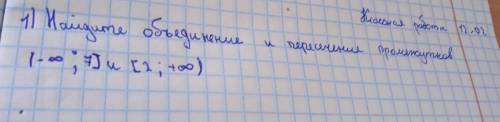 Классная работа 12.02
1) Найдите объединение и пересечения промежутков
(-∞; 7] и [2; +∞)